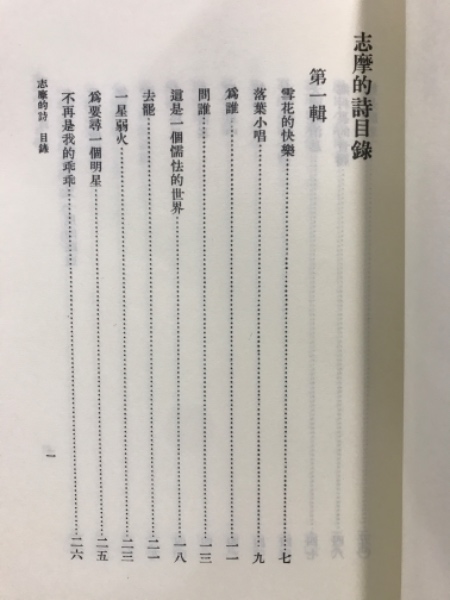 志摩的詩目錄
第一輯
雪花的快樂……七
落葉小唱……九
為誰……一一
問誰……一三
這是一個懦怯的世界……一八
去罷……二一
一星弱火……二三
為要尋一個明星……二五
不再是我的乖乖……二六
志摩的詩 目錄
一